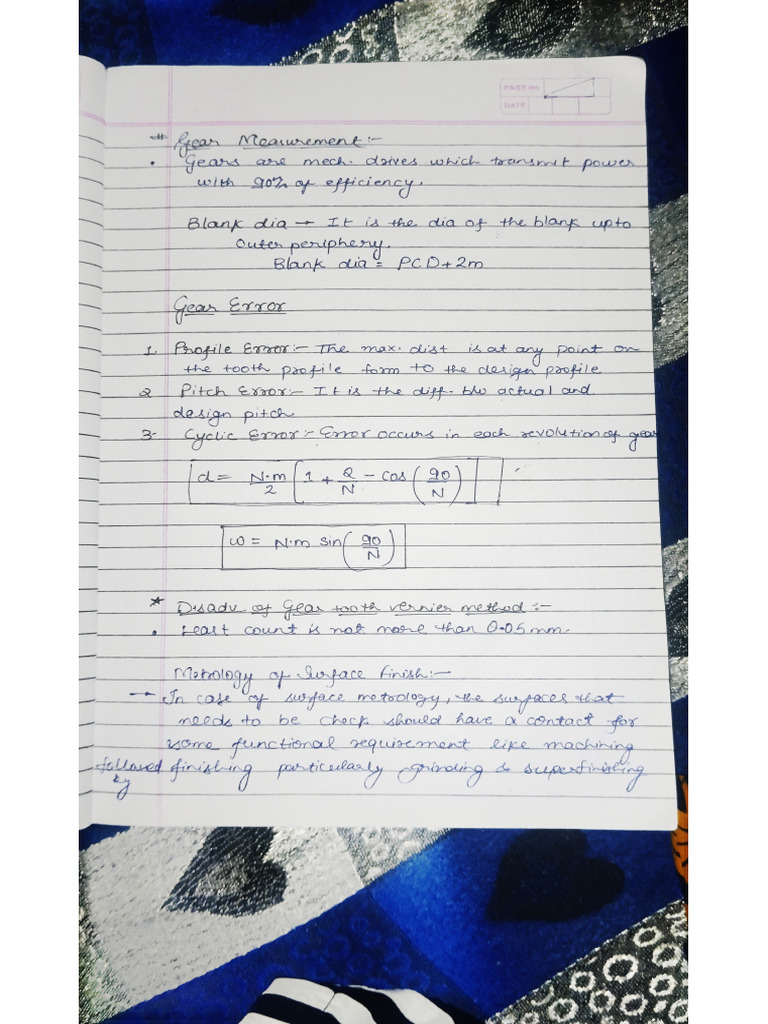 PAGE No.
DATE
# Gear Measurement:-
• Gears are mech. drives which transmit power
with 90% of efficiency.
Blank dia → It is the dia of the blank upto
outer periphery.
Blank dia = PCD+2m
Gear Error
1. Profile Error:- The max. dist is at any point on
the tooth profile form to the design profile
2 Pitch Error:- It is the diff. b/w actual and
design pitch
3- Cyclic Error:- Error occurs in each revolution of gear
d = N.m/2 [1 + 2/N - cos (90/N)]
w = N.m sin (90/N)
* Disadv of Gear tooth vernier method :-
• Least count is not more than 0.05 mm.
Metrology of Surface Finish:-
→ In case of surface metrology, the surfaces that
needs to be check should have a contact for
some functional requirement like machining
followed by finishing particularly grinding & superfinishing